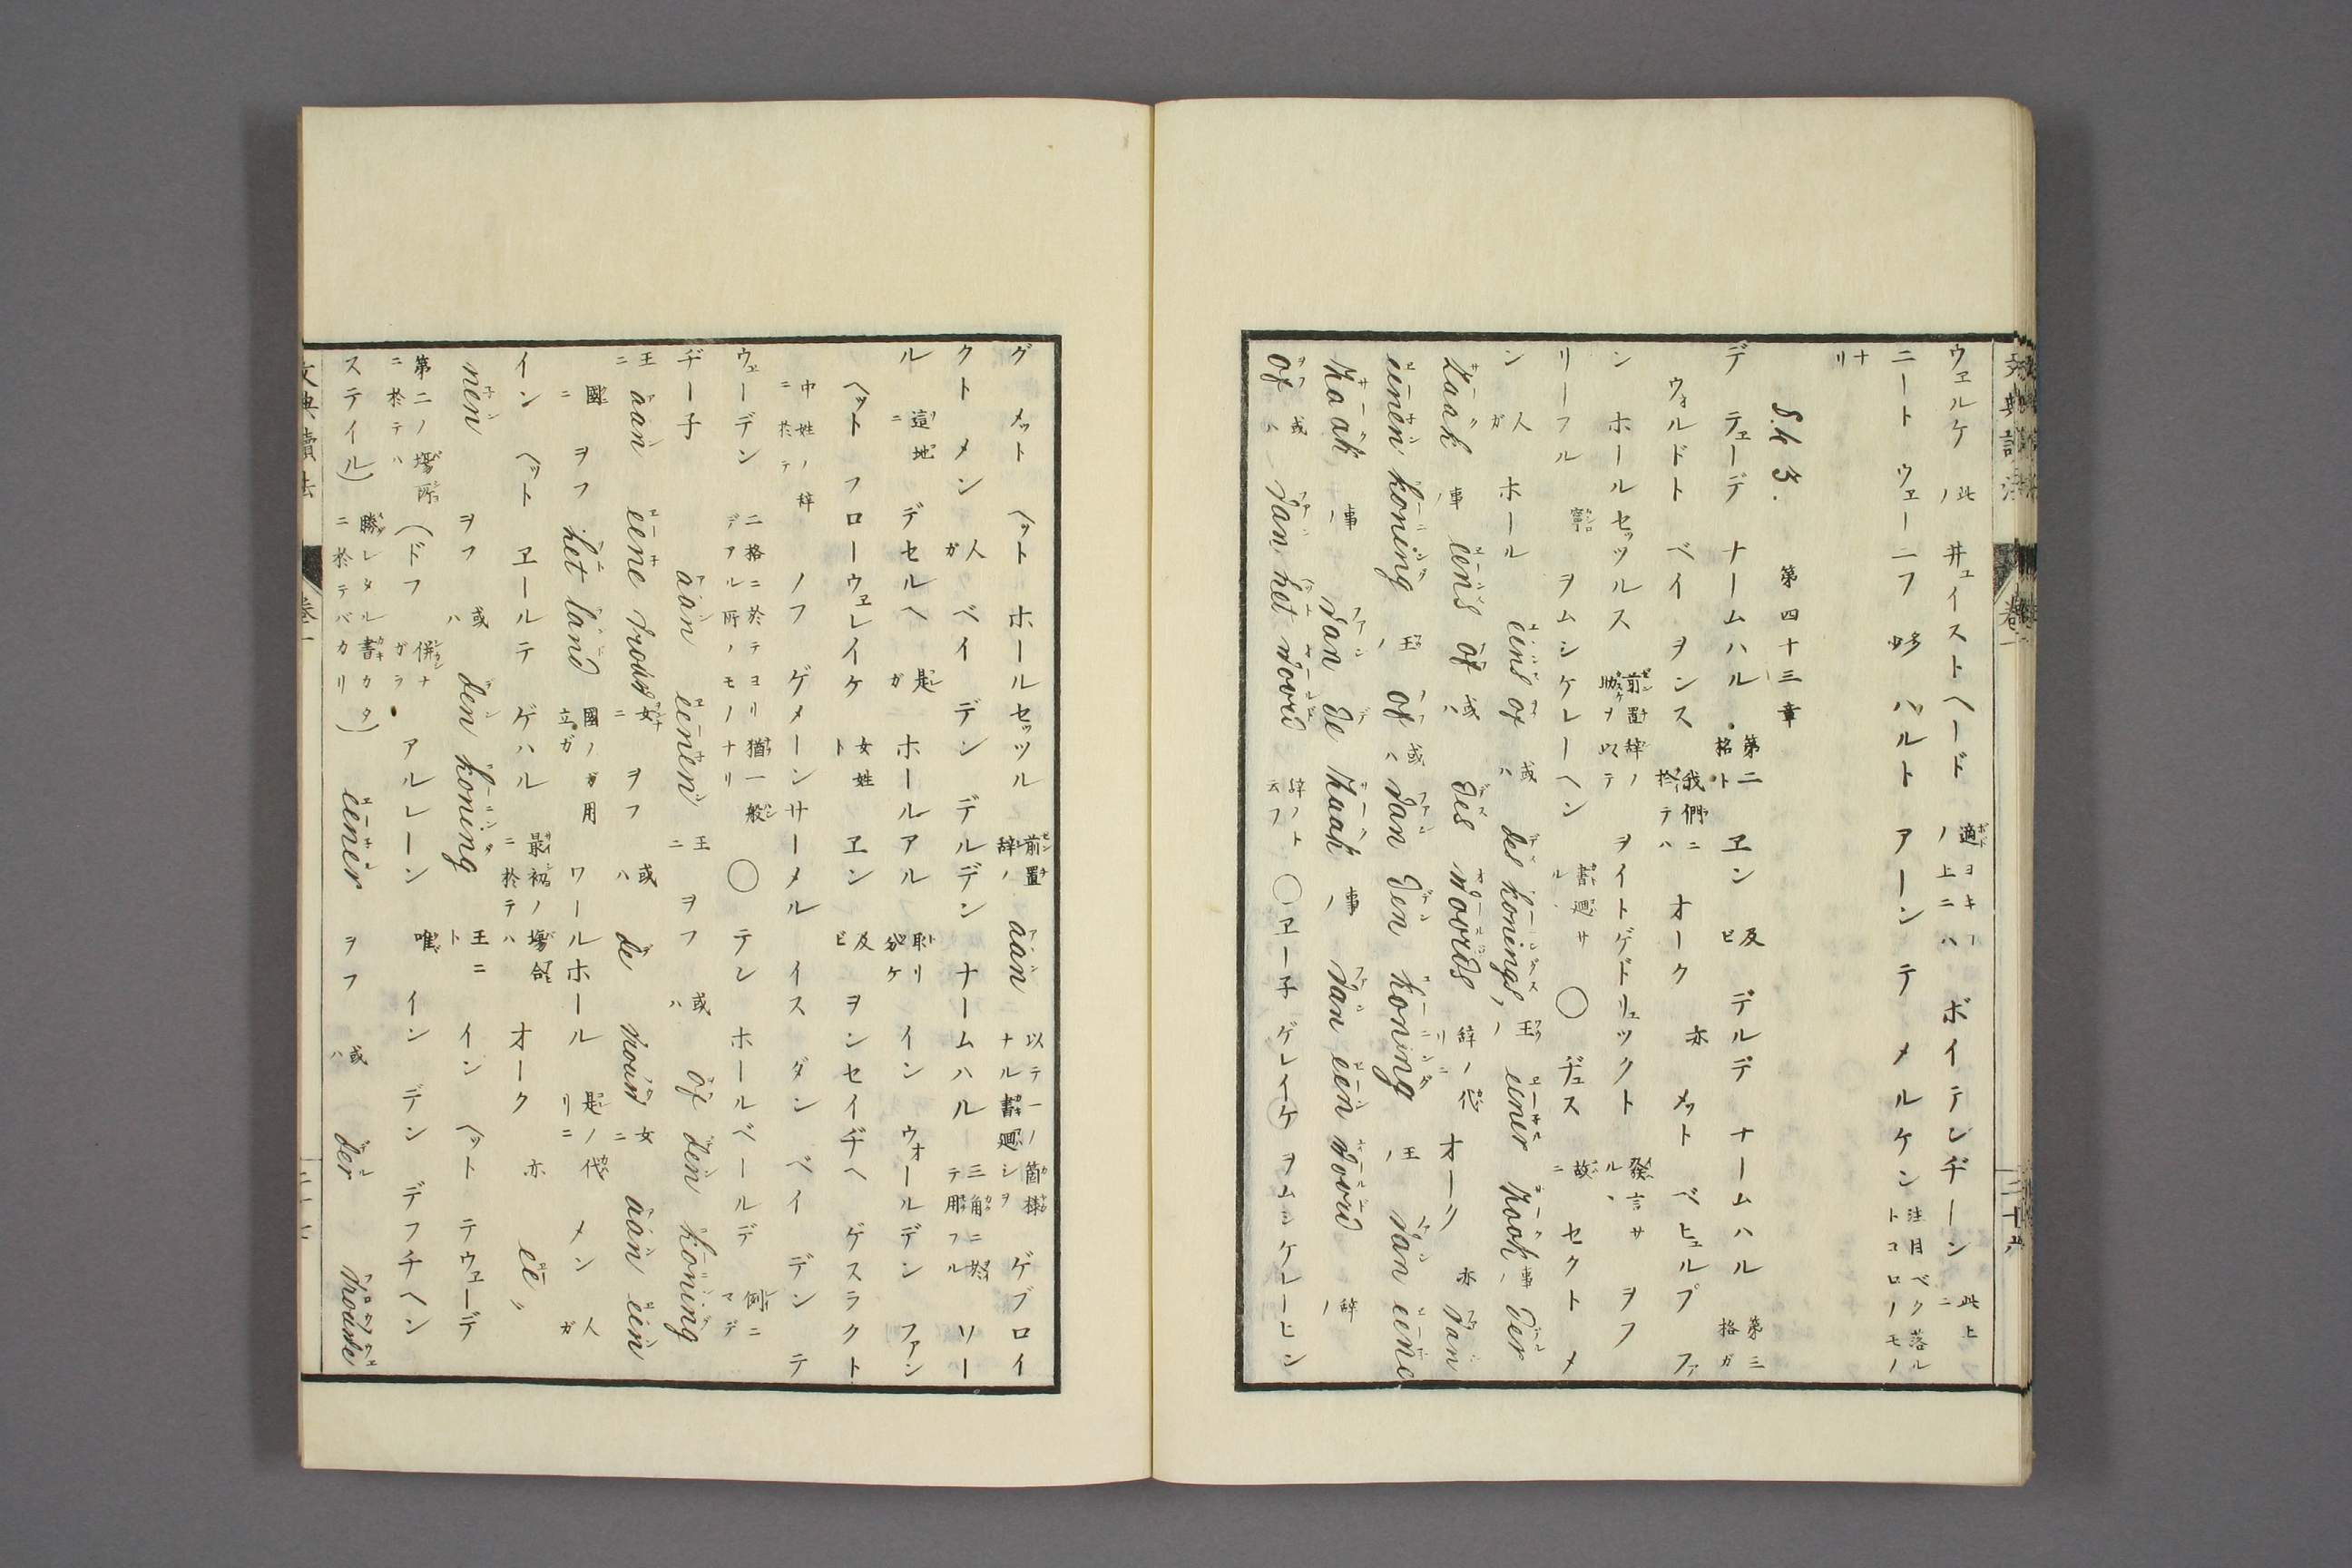 ウェルケ 此ノ 井ュイストヘード 適ヨキノ上ニハ ボイテンヂーン 此上ニ
ニート ウェーニフ 少 ハルト アーンテ メルケン 注目ベク落ルトコロノモノ
ナリ
§.43. 第四十三章
デ テェーデ ナームハル. 第二格ト エン 及ビ デルデ ナームハル 第三格ガ
ウォルドト ベイ ヲンス 我們ニ於テハ オーク 亦 メット ベヒュルプ ファ
ン ホールセッツルス 前置辞ノ助ヲ以テ ヲイトゲドリュックト 發言サル、 ヲフ
リーフル 寧 ヲムシケレーヘン 書廻サル ○ ヂュス 故ニ セクト メ
ン 人ガ ホール eens of 或ハ des konings, 王ノ eener zaak, 事ノ der
zaak 事ノ eens of 或ハ des woords 辞ノ代リニ オーク 亦 van
eenen koning 王ノ of 或ハ van den koning 王ノ van eene
zaak 事ノ van de zaak 事ノ van een woord 辞ノ
of 或ハ van het woord 辞ノト云フ ○ エー子 ゲレイケ ヲムシケレーヒン
グ メット ヘット ホールセッツル 前置辞ノ aan 以テ一ノ箇様ナル書廻シヲ ゲブロイ
クト メン 人ガ ベイ デン デルデン ナームハル 三角ニ於テ用フル ソー
ル 這地ニ デセルヘ 是ガ ホールアル 取リ分ケ イン ウォールデン ファン
ヘット フローウェレイケ 女姓ト エン 及ビ ヲンセイヂヘ ゲスラクト
中姓ノ辞ニ於テ ノフ ゲメーンサーメル イス ダン ベイ デン テ
ウェーデン 二格ニ於テヨリ猶一般デアル所ノモノナリ ○ テン ホールベールデ 例ニマデ
ヂー子 aan eenen 王ニ ヲフ 或ハ of den koning
王ニ aan eene vrouw 女ニ ヲフ 或ハ de vrouw 女ニ aan een
國ニ ヲフ het land 國ノガ用立ガ ワールホール 是ノ代リニ メン 人ガ
イン ヘット エールテ ゲハル 最初ノ場合ニ於テハ オーク 亦 ee,,
nen ヲフ 或ハ den koning 王ニト イン ヘット テウェーデ
第二ノ場所ニ於テハ (ドフ 併ナガラ アルレーン 唯 イン デン デフチヘン
ステイル) 勝レタル書カタニ於テバカリ) eener ヲフ 或ハ der vrouwe